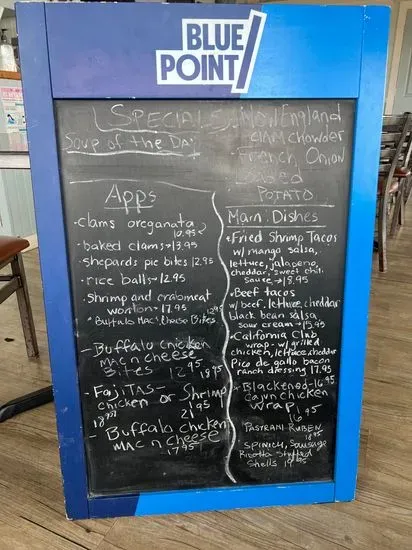 BLUE
POINT
Specials
Soup of the Day
New England
clam chowder
• French Onion
Loaded
Potato
Apps
• clams oreganata
12.95
• baked clams - 13.95
• shepards pie bites 12.95
• rice balls - 12.95
Shrimp and crabmeat
wonton - 17.95
* Buffalo Mac n Cheese Bites
12.95
- Buffalo chicken
MAC n cheese
Bites 12.95
18.95
- FajiTAS -
chicken or Shrimp
18.95 21.95
- Buffalo chicken
MAC n cheese
17.95
Main Dishes
• Fried Shrimp Tacos
w/ mango salsa,
lettuce, jalapeno,
cheddar, sweet chili
sauce - 18.95
• Beef tacos
w/ beef, lettuce, cheddar
black bean salsa
sour cream - 15.95
• California Club
wrap - w/ grilled
chicken, lettuce, cheddar
Pico de gallo bacon
ranch dressing 17.95
• Blackened - 16.95
cajun chicken
wrap
16.95
PASTRAMI RUBEN
18.95
SPINICH, SAUSAGE
Ricotta Stuffed
Shells 19.95